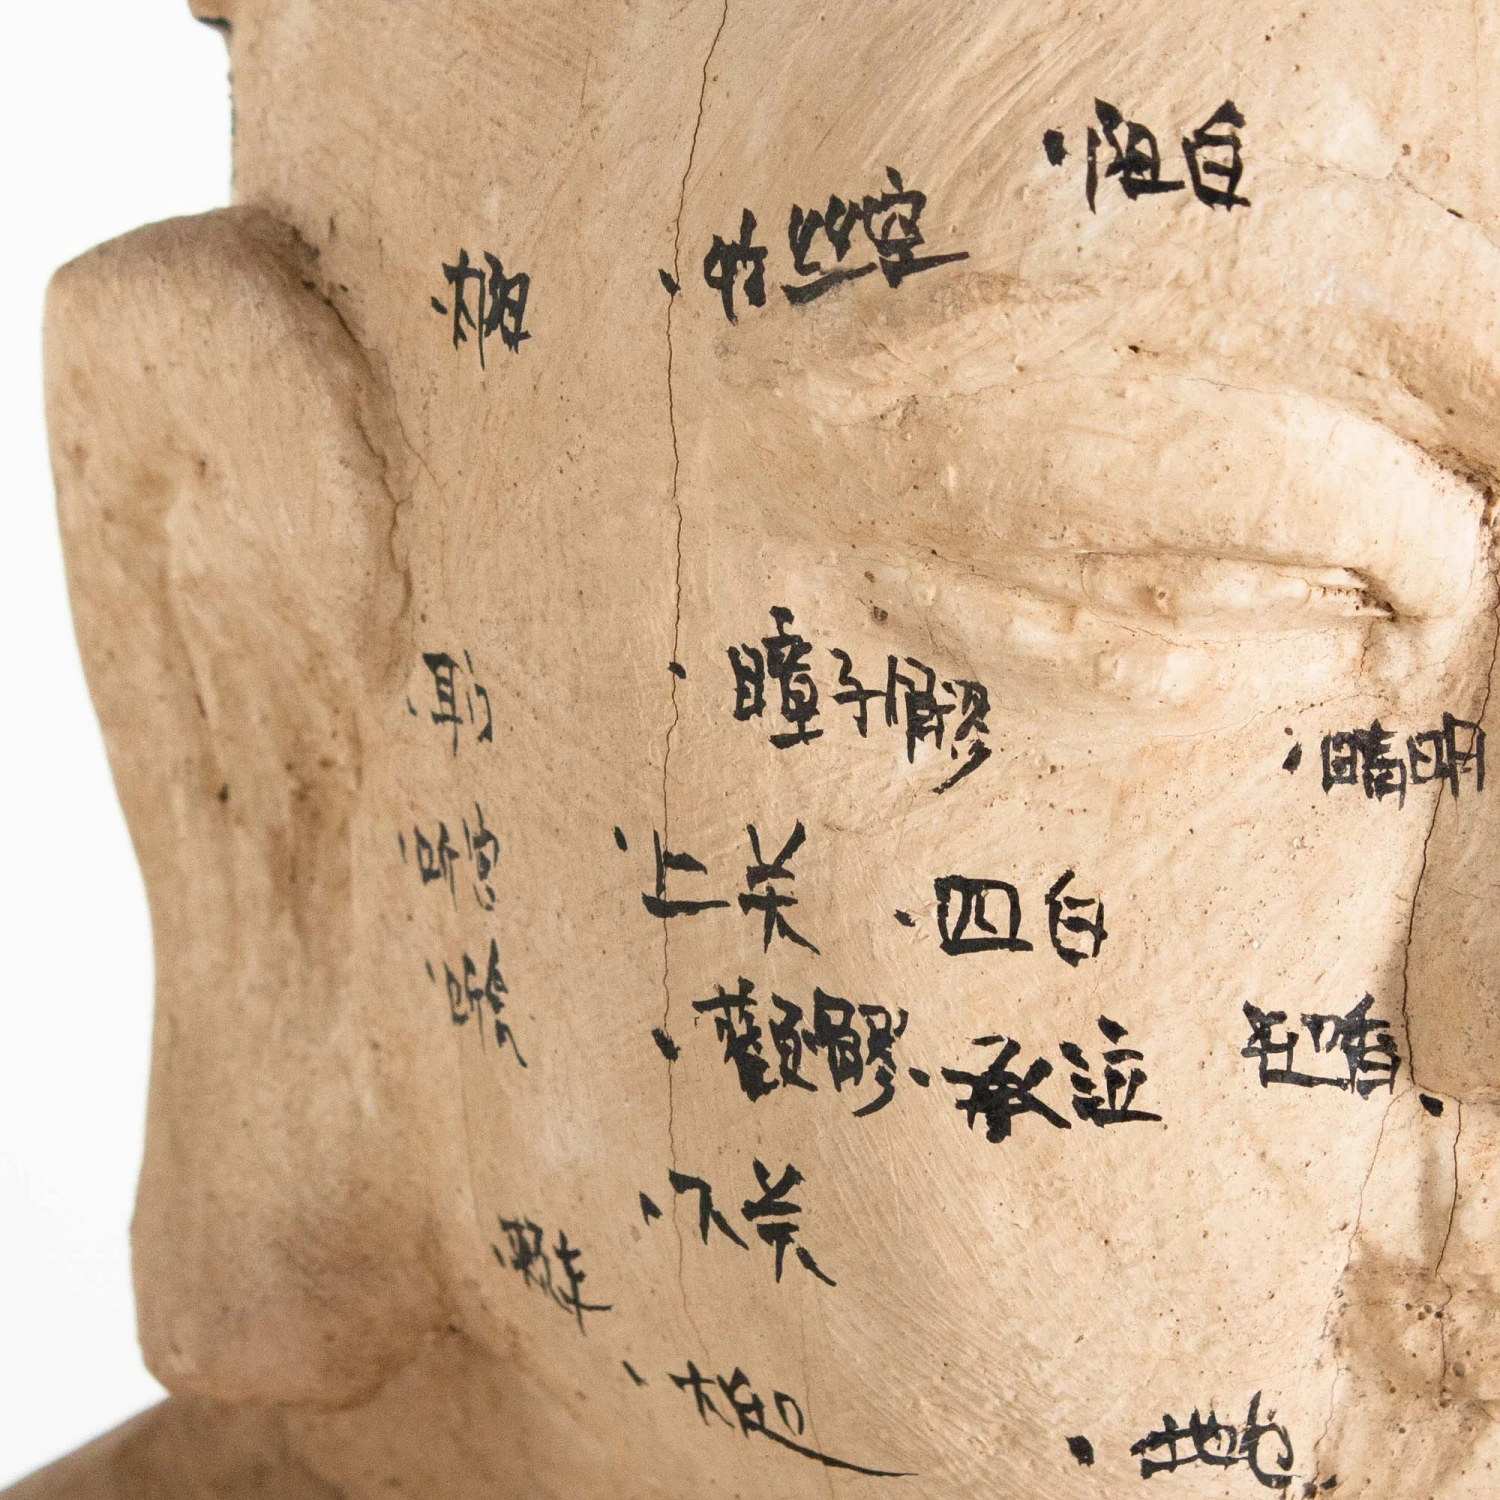 阳白
丝空
太阳
瞳子髎
耳门
睛明
听宫
上关
四白
听会
承泣
迎香
下关
大迎
地仓